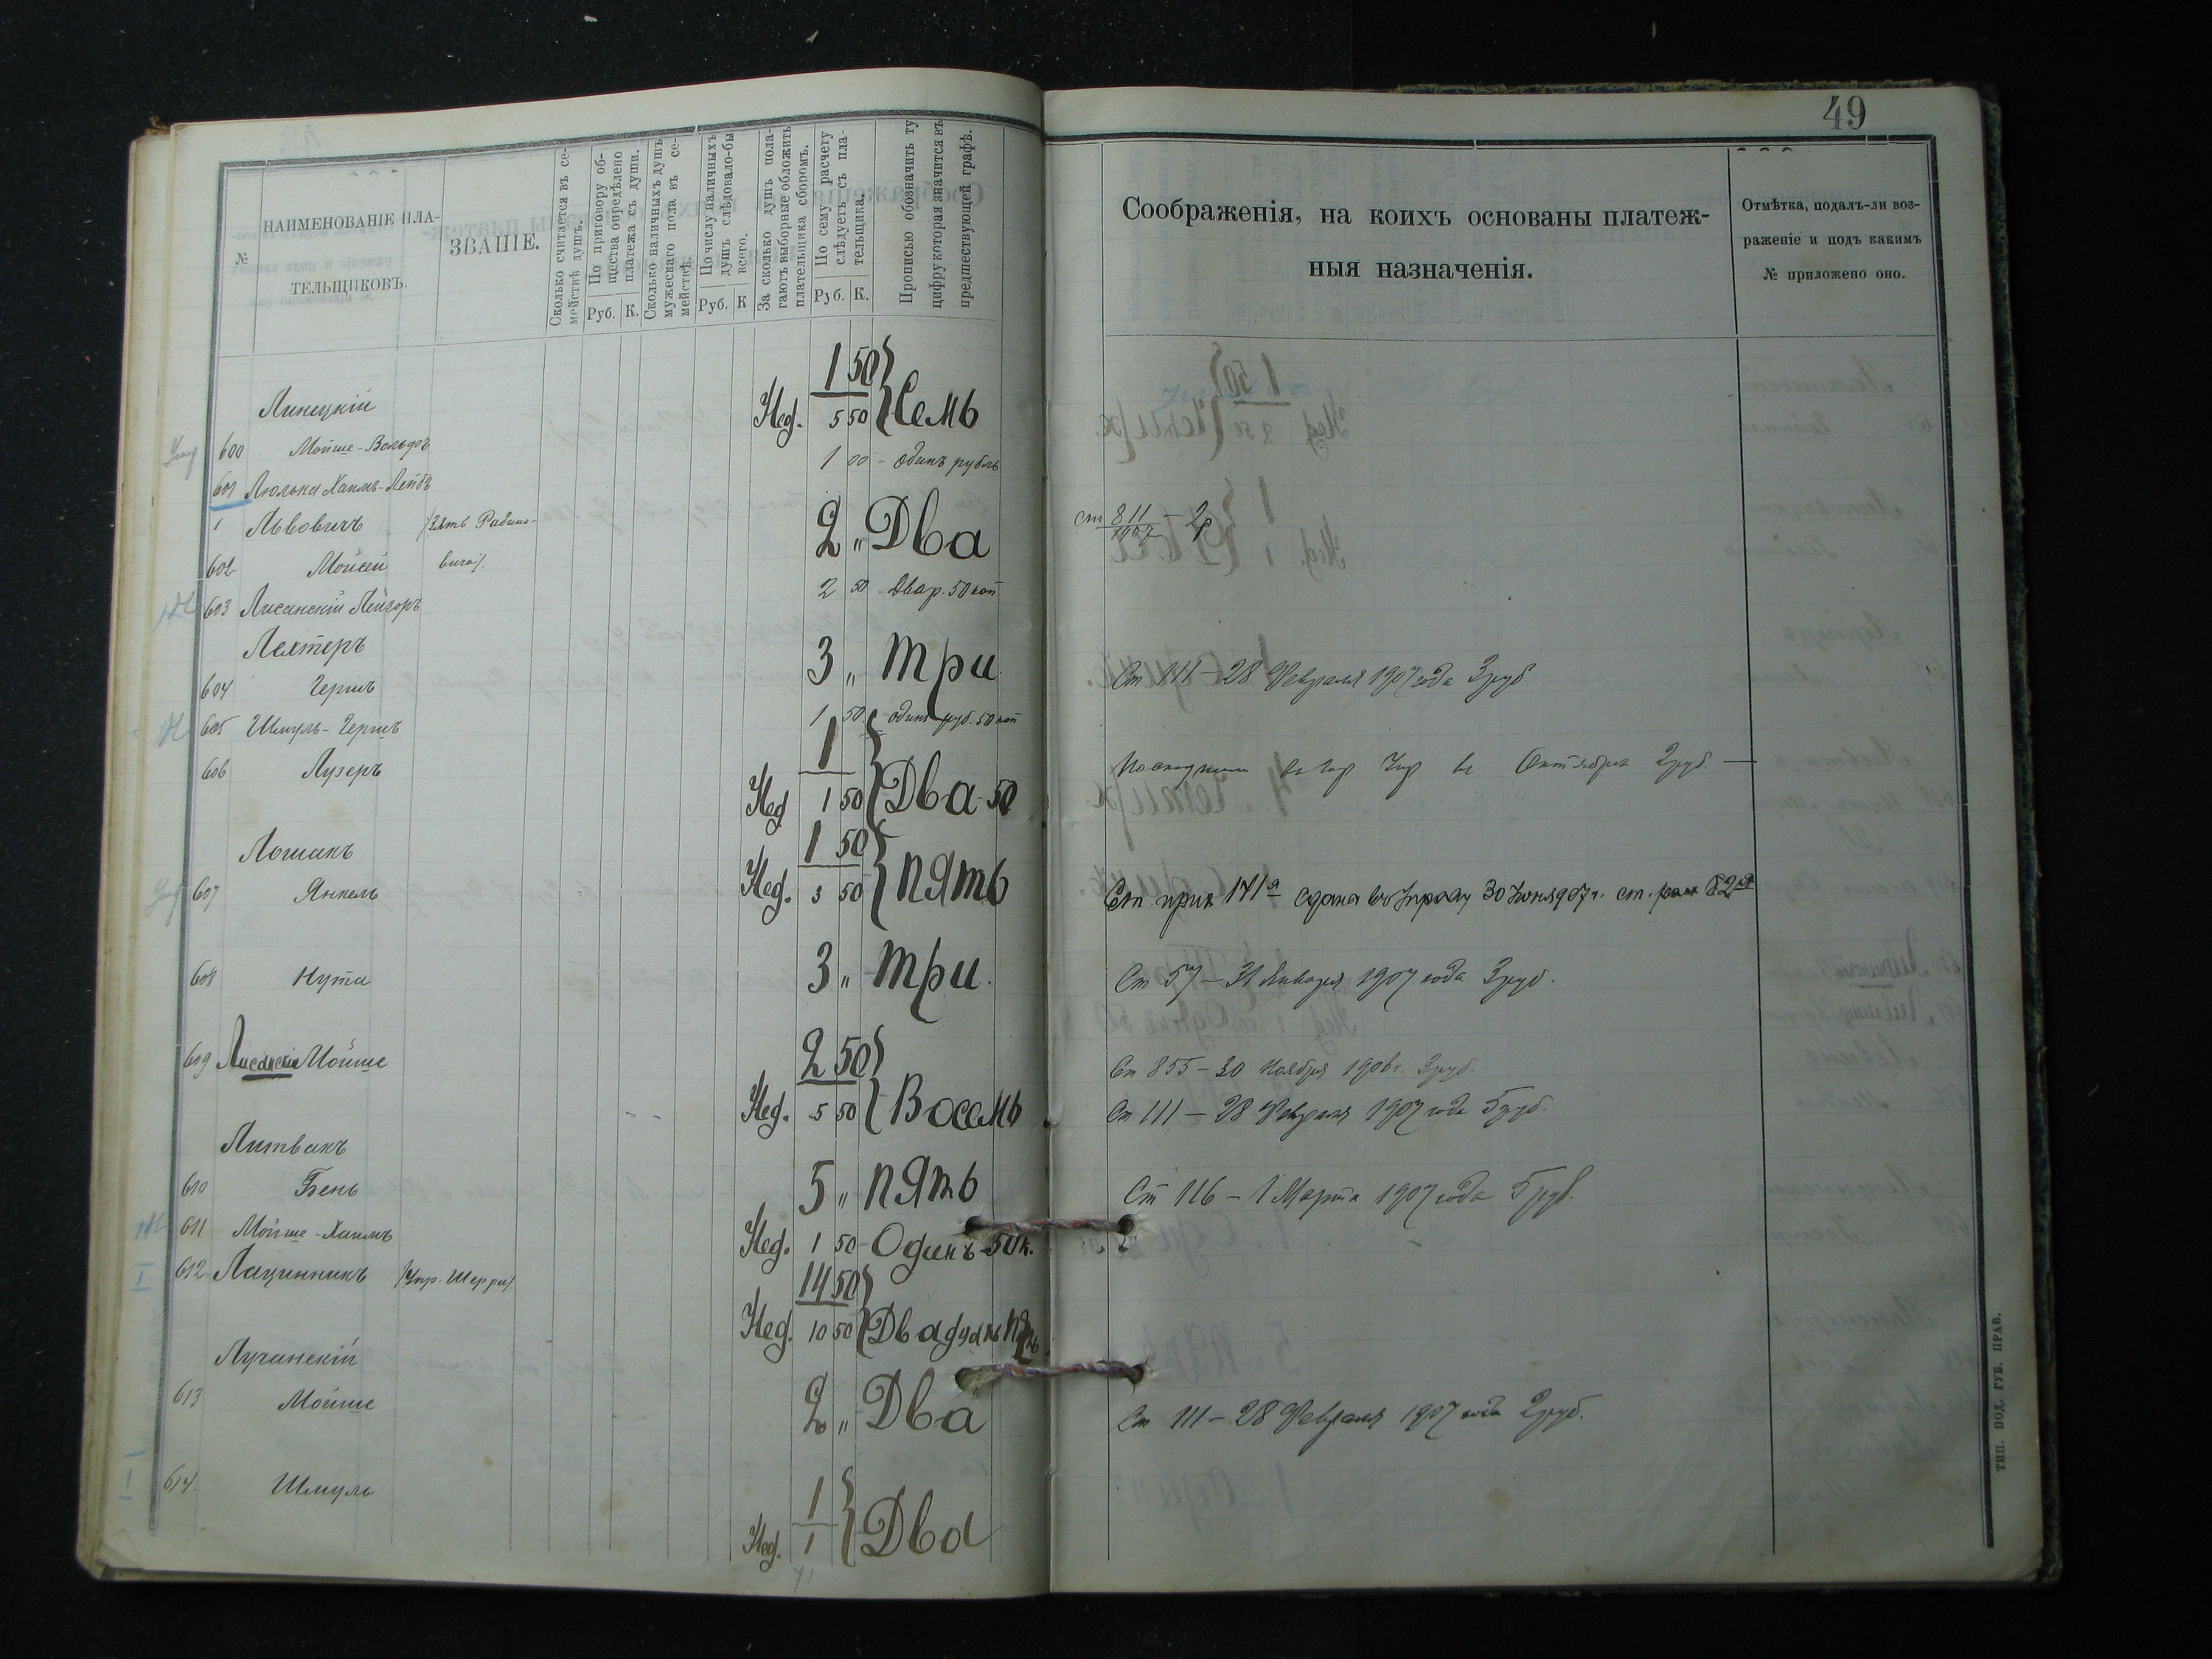 49
№
НАИМЕНОВАНІЕ ПЛА-
ТЕЛЬЩИКОВЪ.
ЗВАНІЕ.
Сколько считается въ се-
мействѣ душъ.
По приговору об-
щества опредѣлено
платежа съ души.
Руб. К.
Сколько наличныхъ душъ
мужескаго пола въ се-
мействѣ.
По числу наличныхъ
душъ слѣдовало-бы
всего.
Руб. К
За сколько душъ пола-
гаютъ выборные обложить
плательщика сборомъ.
По сему расчету
слѣдуетъ съ пла-
тельщика.
Руб. К.
Прописью обозначить ту
цифру которая значится въ
предшествующей графѣ.
Соображенія, на коихъ основаны платеж-
ныя назначенія.
Отмѣтка, подалъ-ли воз-
раженіе и подъ какимъ
№ приложено оно.
1 50
Линецкій Нед. 5 50 Семь
600 Мойше-Вольфъ
1 00 - одинъ рубль
601 Люлька Хаимъ-Лейбъ
Львовичъ /Зять Рабино- 2 " Два ст 811/1907 - 2р
602 Мойсей вича/
2 50 - Два р. 50 коп
603 Лисанскій Лейзоръ
Лехтеръ 3 " Три Ст 111 - 28 Февраля 1907 года 3 руб.
604 Гершъ
1 50 - одинъ руб. 50 коп
605 Шмуль-Гершъ
1
606 Лузеръ Октября 2 руб. —
Нед 1 50 Два-50
Лошакъ 1 50
607 Янкель Нед. 3 50 Пять Ст прих 171я сдана въ Управу 30 Іюня 907 г. ст.
608 Нута 3 " Три. Ст 57 - 31 Января 1907 года 3 руб.
609 Лисанскій Мойше 2 50 Ст 855 - 30 Ноября 1906 г. 3 руб.
Нед. 5 50 Восемь Ст 111 - 28 Февраля 1907 года 5 руб.
Литвакъ
610 Бень 5 " Пять Ст 116 - 1 Марта 1907 года 5 руб.
611 Мойше-Хаимъ Нед. 1 50 - Одинъ-50к.
612 Лацинникъ /Упр. Шерри/ 14 50
Нед. 10 50 Двадцать Пять
Лучанскій
613 Мойше 2 " Два Ст 111 - 28 Февраля 1907 года 2 руб.
614 Шмуль 1
Нед. 1 Два
ТИП. ПОД. ГУБ. ПРАВ.